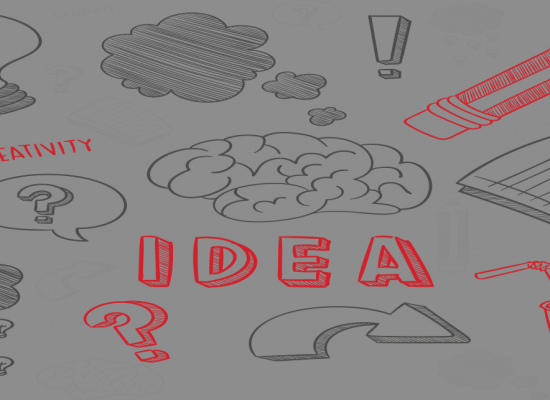 EATIVITY
?
!
IDEA
?